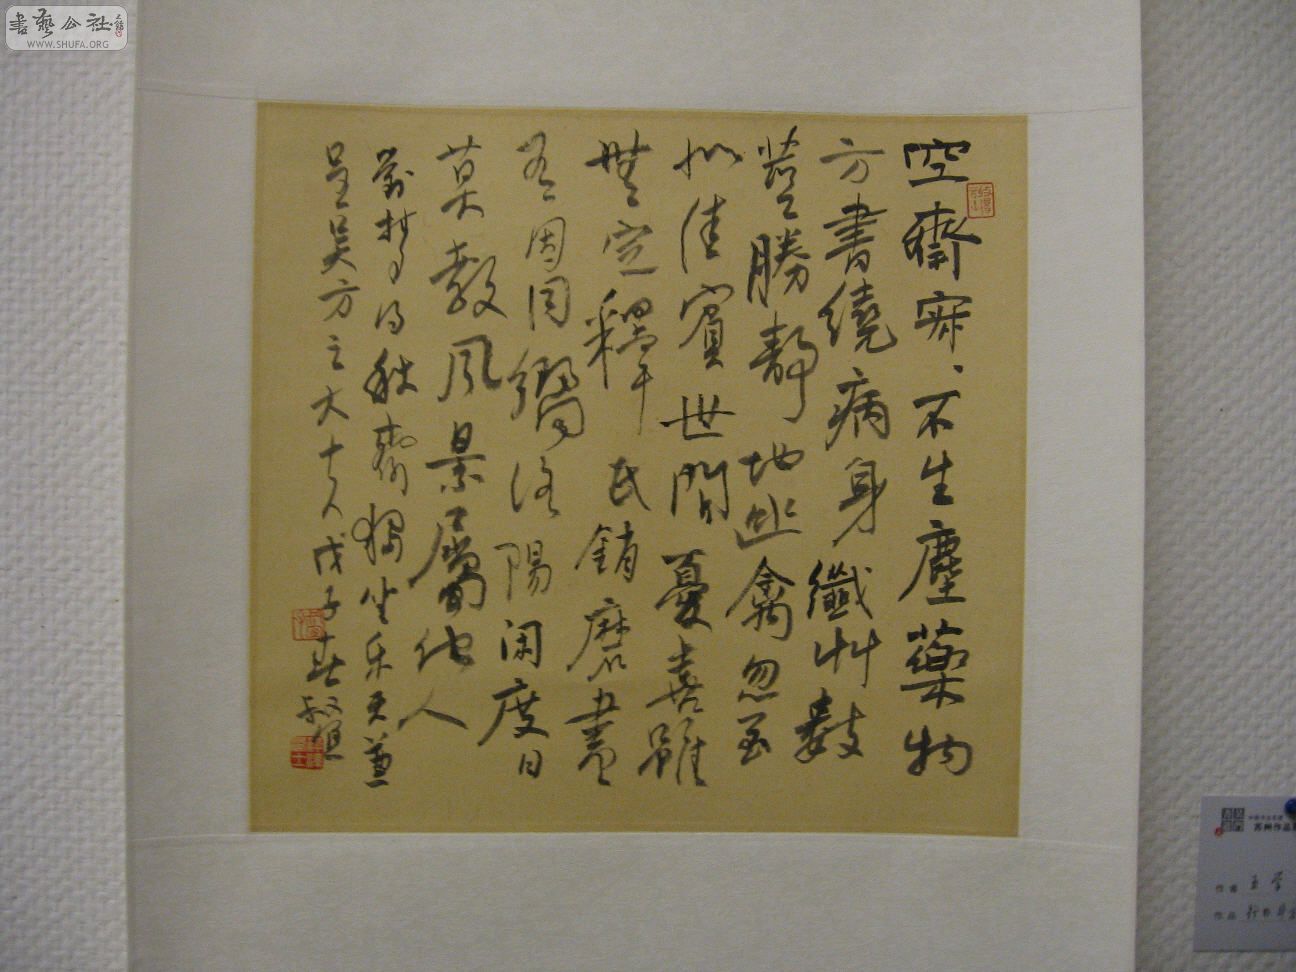 書藝公社
WWW.SHUFA.ORG
空齋寂、不生塵藥物
方書繞病身纖艸數
莖勝靜地幽禽忽至
似佳賓世間憂喜雖
無定釋氏銷磨盡
有因同嚮洛陽閑度日
莫教風景屬他人
劉夢得秋齋獨坐樂天兼
呈吳方之大夫戊子春
苏州作品
作者 王学
作品